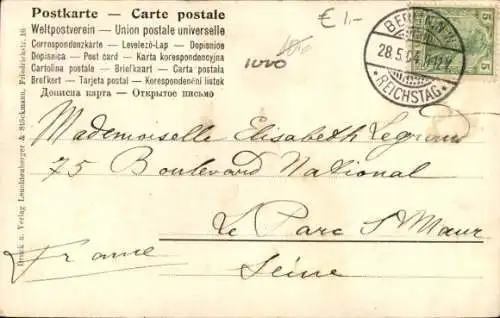 Postkarte — Carte postale
Weltpostverein — Union postale universelle
Correspondenzkarte — Levelező-Lap — Dopisnice
Dopisnica — Post card — Karta korespondencyjna
Cartolina postale — Briefkaart — Carta postala
Brefkort — Tarjeta postal — Korespondenční listek
Дописна карта — Открытое письмо
€ 1,-
1000
BERLIN
28.5.04
* REICHSTAG *
5
5
Mademoiselle Elisabeth Legrand
75 Boulevard National
Le Parc St Maur
Seine
France
Druck u. Verlag Leuchtenberger & Stöckmann, Friedrichstr. 16